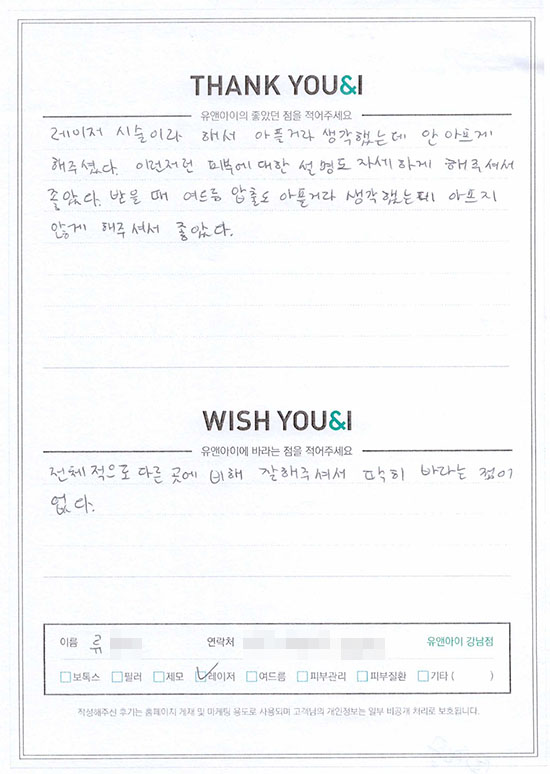 THANK YOU&I
유앤아이의 좋았던 점을 적어주세요
레이저 시술이라 해서 아플거라 생각했는데 안 아프게
해주셨다. 이런저런 피부에 대한 설명도 자세하게 해주셔서
좋았다. 받을 때 여드름 압출도 아플거라 생각했는데 아프지
않게 해주셔서 좋았다.
WISH YOU&I
유앤아이에 바라는 점을 적어주세요
전체적으로 다른 곳에 비해 잘해주셔서 딱히 바라는 점이
없다.
이름 류 연락처 유앤아이 강남점
보톡스 필러 제모 레이저 여드름 피부관리 피부질환 기타 ( )
작성해주신 후기는 홈페이지 게재 및 마케팅 용도로 사용되며 고객님의 개인정보는 일부 비공개 처리로 보호됩니다.